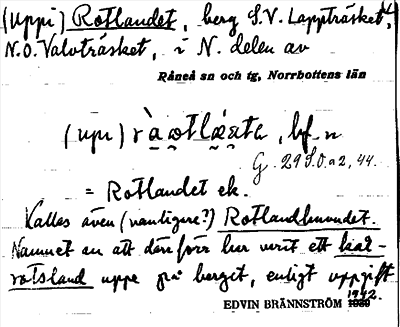 (uppi) Rotlandet, berg S.V. Lappträsket,
N.O. Valvträsket, i N. delen av
Råneå sn och tg, Norrbottens län
(upı) bf. n
G. 29 S.O. a 2, 44.
= Rotlandet ek.
Kallas även (vanligare?) Rotlandhuvudet.
Namnet av att där förr har varit ett
rotsland uppe på berget, enligt uppgift
1942.
EDVIN BRÄNNSTRÖM 1939